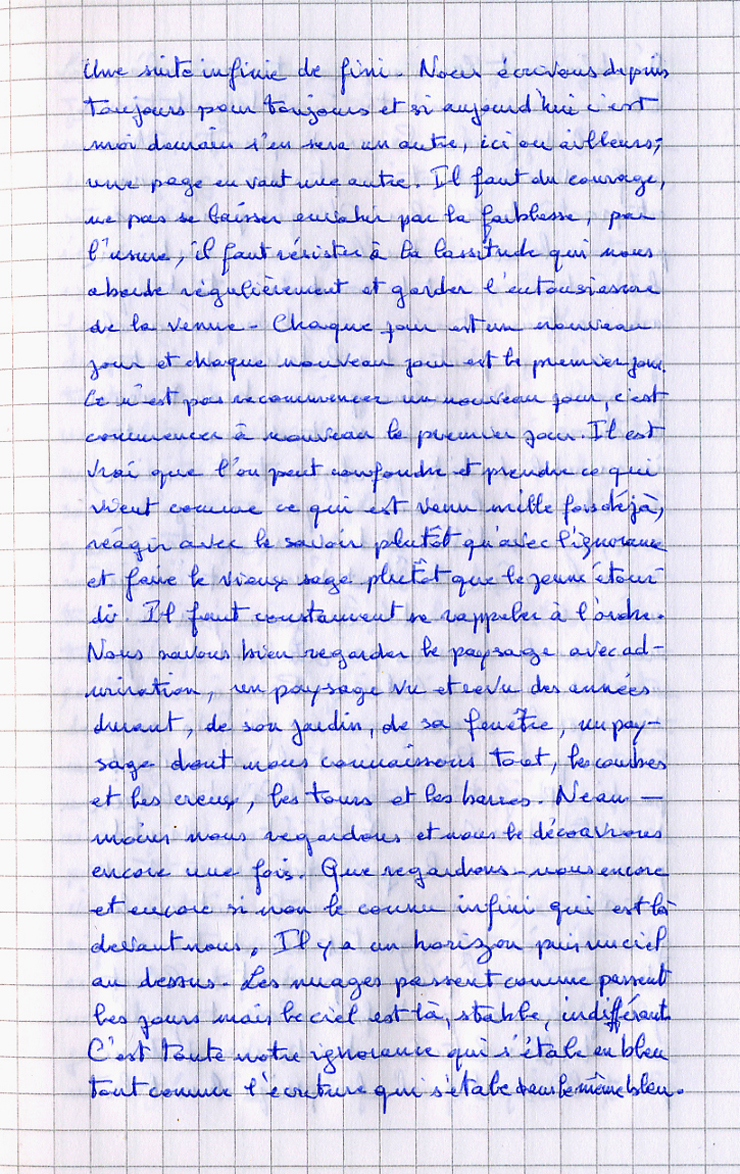 Une suite infinie de fini. Nous écrivons depuis
toujours pour toujours et si aujourd'hui c'est
moi demain s'en sera un autre, ici ou ailleurs,
une page en vaut une autre. Il faut du courage,
ne pas se laisser envahir par la faiblesse, par
l'usure, il faut résister à la lassitude qui nous
aborde régulièrement et garder l'entousiasme
de la venue. Chaque jour est un nouveau
jour et chaque nouveau jour est le premier jour.
Ce n'est pas recommencer un nouveau jour, c'est
commencer à nouveau le premier jour. Il est
vrai que l'on peut confondre et prendre ce qui
vient comme ce qui est venu mille fois déjà,
réagir avec le savoir plutôt qu'avec l'ignorance
et faire le vieux sage plutôt que le jeune étour-
di. Il faut constamment se rappeler à l'ordre.
Nous savons bien regarder le paysage avec ad-
miration, un paysage vu et revu des années
durant, de son jardin, de sa fenêtre, un pay-
sage dont nous connaissons tout, les courbes
et les creux, les tours et les barres. Néan-
moins nous regardons et nous le découvrons
encore une fois. Que regardons-nous encore
et encore si non le connu infini qui est là
devant nous. Il y a un horizon puis un ciel
au dessus. Les nuages passent comme passent
les jours mais le ciel est là, stable, indifférent.
C'est toute notre ignorance qui s'étale en bleu
tout comme l'écriture qui s'étale dans le même bleu.